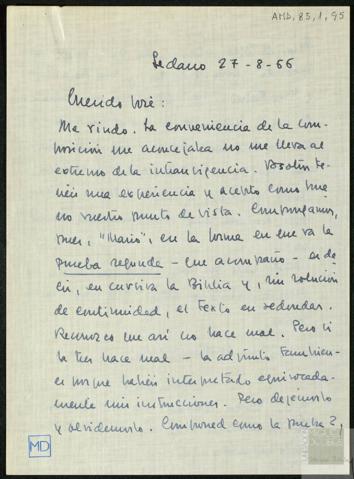 AMD, 85, 1, 95
Sedano 27-8-66
Querido José:
Me rindo. La conveniencia de la com-
posición me aconsejaba no me lleva al
extremo de la intransigencia. Vosotros te-
néis una experiencia y acepto como bue-
no vuestro punto de vista. Compongamos,
pues, "Mario", en la forma en que va la
prueba segunda - que acompaño - es de-
cir, en cursiva la Biblia y, sin solución
de continuidad, el texto en redondas.
Reconozco que así no hace mal. Pero si
la hace mal - la adjunto también -
es porque habéis interpretado equivocada-
mente mis instrucciones. Pero dejémoslo
y olvidémoslo. Componed como la prueba 2,
MD